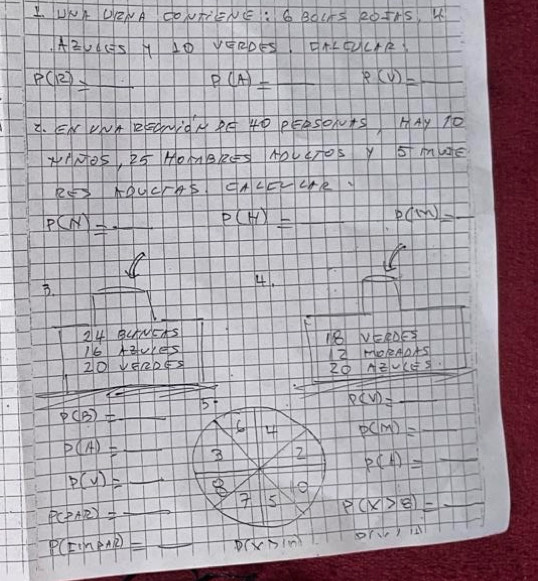 1. UNA URNA CONTIENE: 6 BOLAS ROJAS, 4
AZULES Y 10 VERDES. CALCULAR:
P(R)= P(A)= P(V)=
2. EN UNA REUNIÓN DE 40 PERSONAS, HAY 10
NIÑOS, 25 HOMBRES ADULTOS Y 5 MUJE
RES ADULTAS. CALCULAR:
P(N)= P(H)= P(M)=
3.
24 BLANCAS
16 AZULES
20 VERDES
P(B)=
P(A)=
P(V)=
4.
18 VERDES
12 MORADAS
20 AZULES
P(V)=
P(M)=
P(A)=
5.
6 4
3 2
8 10
7 5
P(PAR)=
P(IMPAR)=
P(X>8)=